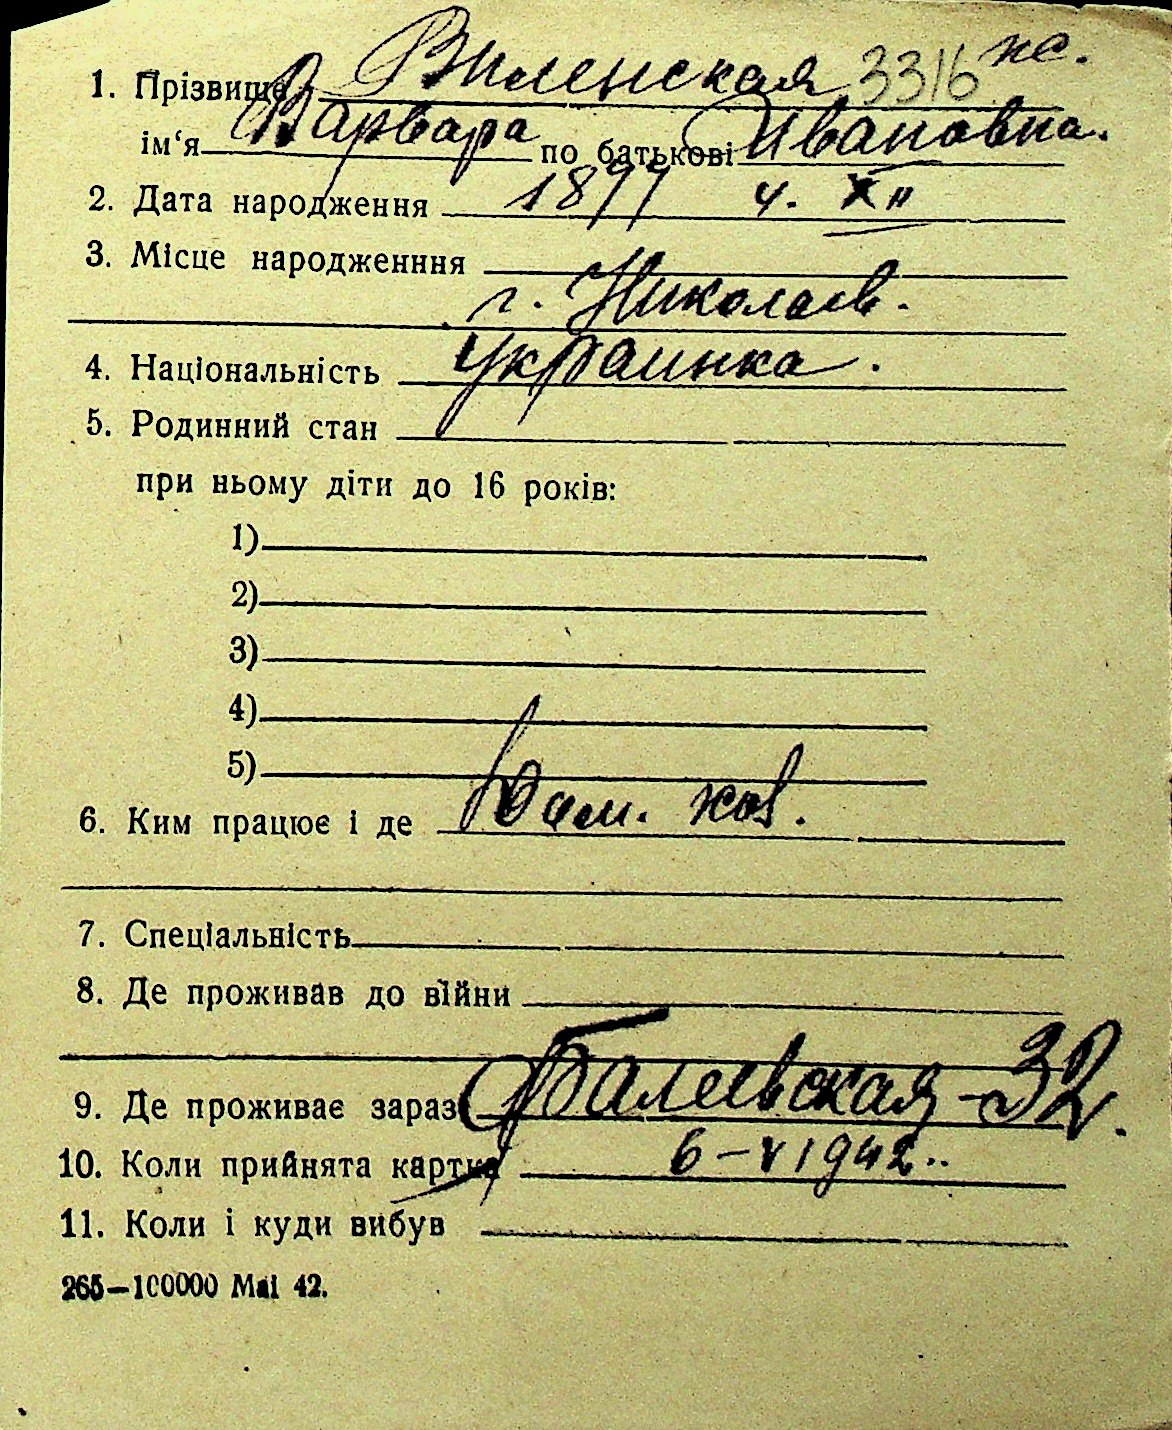 1. Прізвище Виленская 3316 нс.
ім‘я Варвара по батькові Ивановна.
2. Дата народження 1877 4. XII
3. Місце народженння
г. Николаев.
4. Національність Украинка.
5. Родинний стан
при ньому діти до 16 років:
1)
2)
3)
4)
5)
6. Ким працює і де Дом. хоз.
7. Спеціальність
8. Де проживав до війни
9. Де проживає зараз 32.
10. Коли прийнята картка 6–V 1942..
11. Коли і куди вибув
265–100000 Mai 42.